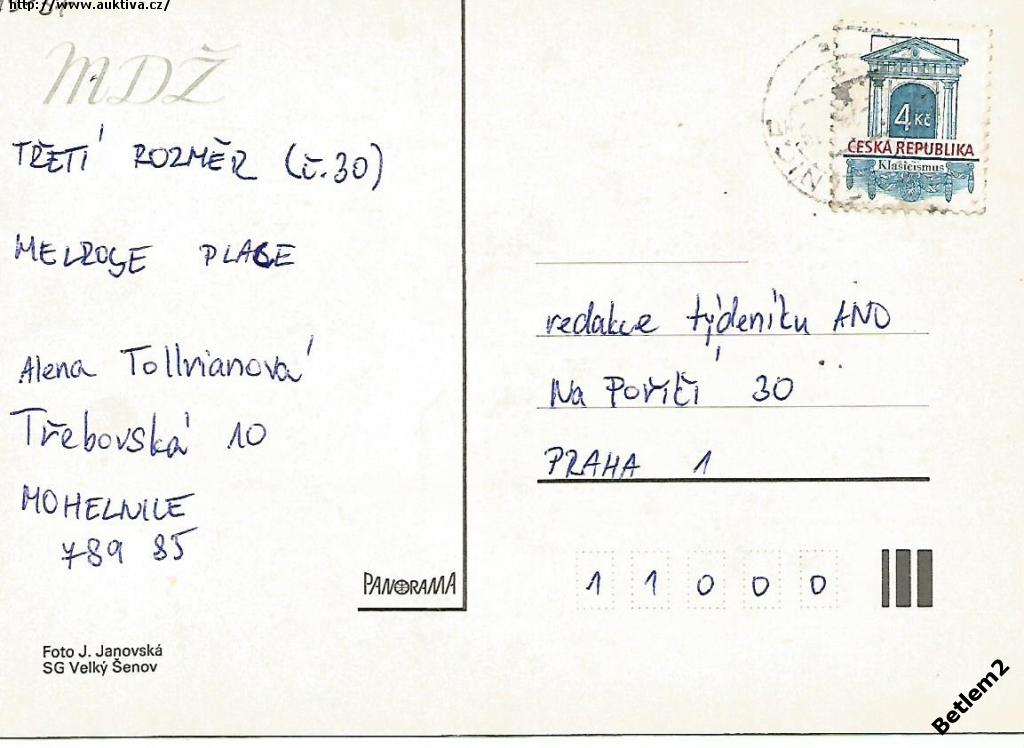 http://www.auktiva.cz/
MDŽ
TŘETÍ ROZMĚR (č.30)
MELROSE PLACE
Alena Tollrianová
Třebovská 10
MOHELNICE
789 85
PANORAMA
Foto J. Janovská
SG Velký Šenov
4 Kč
ČESKÁ REPUBLIKA
Klasicismus
redakce týdeníku ANO
Na Poříčí 30
PRAHA 1
11000
Betlem2